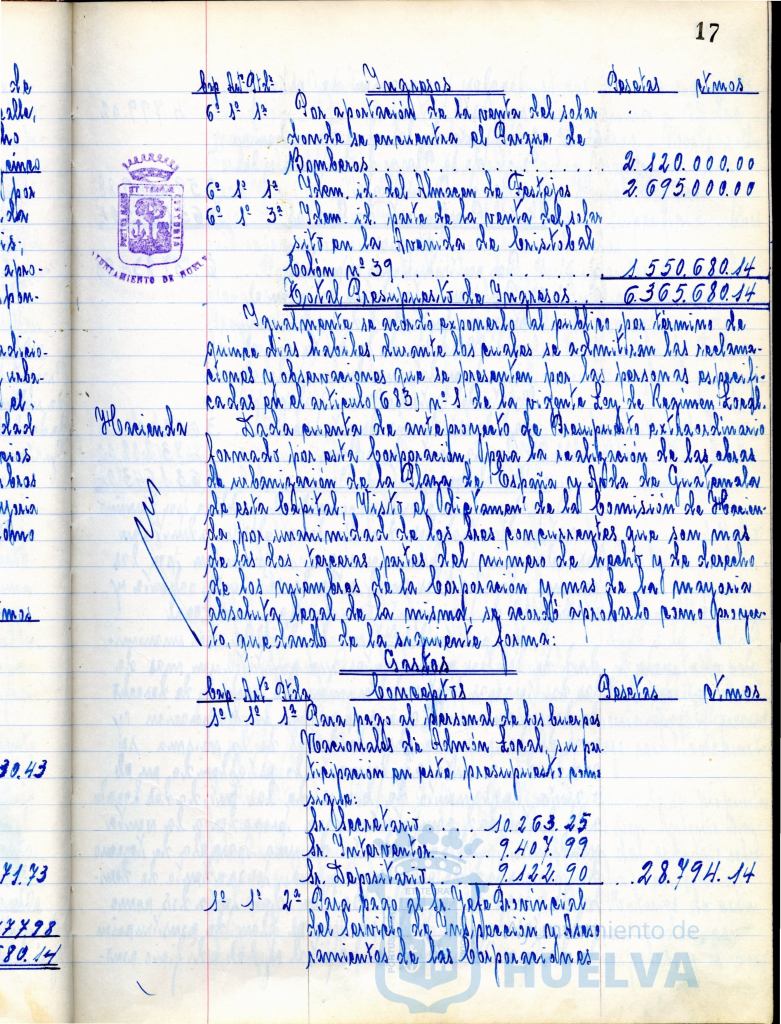 17
Cap Artº Ptdª Ingresos Pesetas ctmos
6º 1º 1ª Por aportación de la venta del solar
donde se encuentra el Parque de
Bomberos . . . . . . . . . . . . . . . . . . 2.120.000.00
6º 1º 1ª Idem. id. del Almacen de Festejos 2.695.000.00
6º 1º 3ª Idem. id. parte de la venta del solar
sito en la Avenida de Cristobal
Colón nº 39 . . . . . . . . . . . . . 1.550.680.14
Total Presupuesto de Ingresos . . 6.365.680.14
Igualmente se acordó exponerlo al publico por término de
quince dias habiles, durante los cuales se admitirán las reclama-
ciones y observaciones que se presenten por las personas especifi-
cadas en el articulo (683) nº 1 de la vigente Ley de Regimen Local.
Hacienda
Dada cuenta de anteproyecto de Presupuesto extraordinario
formado por esta Corporación, para la realización de las obras
de urbanización de la Plaza de España y Avda de Guatemala
de esta Capital; Visto el dictamen de la Comisión de Hacien-
da por unanimidad de los Sres concurrentes que son mas
de las dos terceras partes del número de hecho y de derecho
de los miembros de la Corporación y mas de la mayoria
absoluta legal de la misma, se acordó aprobarlo como proyec-
to, quedando de la siguiente forma:
Gastos
Cap. Artº Ptda Conceptos Pesetas ctmos
1º 1º 1ª Para pago al personal de los Cuerpos
Nacionales de Admón Local, su par-
ticipación en este presupuesto como
sigue:
Sr. Secretario . . . . 10.263.25
Sr. Interventor. . . . 9.407.99
Sr. Depositario . . . 9.122.90 . . 28.794.14
1º 1º 2ª Para pago al Sr. Jefe Provincial
del Servicio de Inspección y Aseso-
ramientos de las Corporaciones
AYUNTAMIENTO DE HUELVA
Ayuntamiento de
HUELVA
de
calle,
cinco
por
da
apro-
pon-
adicio-
urba-
el
dad
cios
obras
yoria
omo
mos
30.43
71.73
77.98
80.14